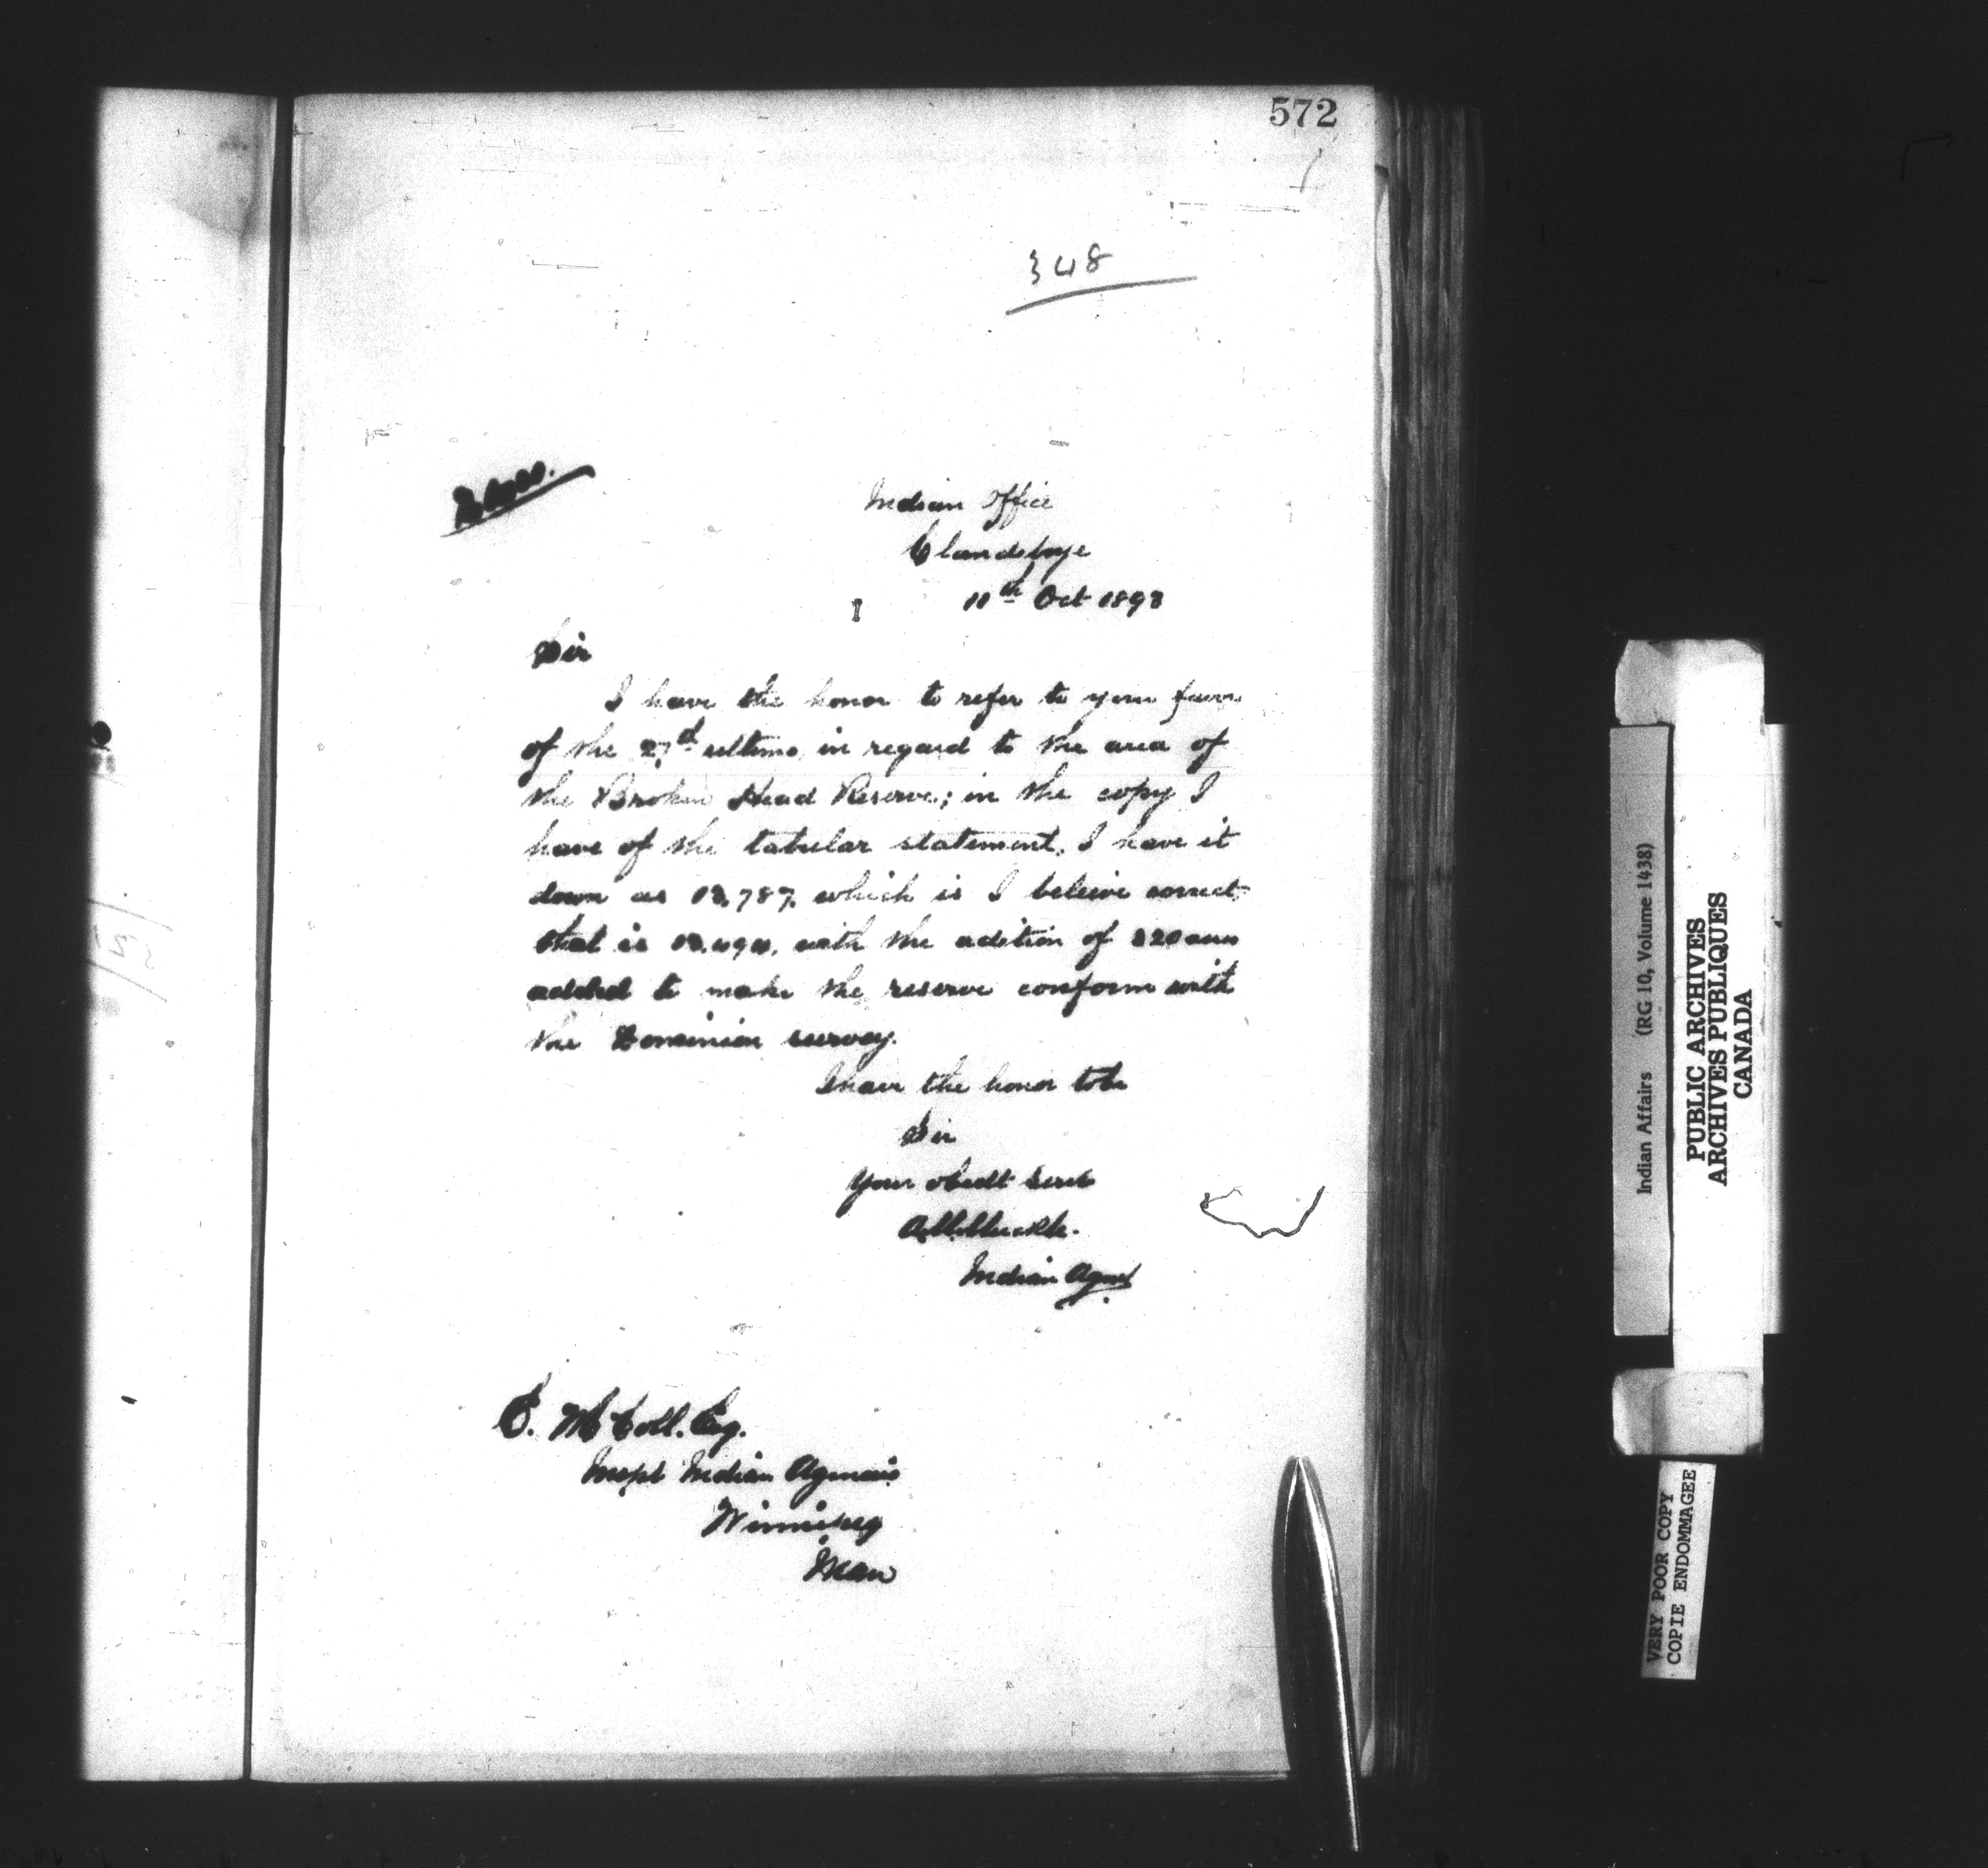 572
348
Indian Office
Clandeboye
11th Oct 1893
Sir
I have the honor to refer to your favor
of the 27th ultimo, in regard to the area of
the Broken Head Reserve; in the copy I
have of the tabular statement, I have it
down as 13,787, which is I beleive correct,
that is with the adition of 320 acres
added to make the reserve conform with
the Dominion survey.
I have the honor to be
Sir
Your obedt Servt
A.M. Muckle.
Indian Agent
E. McColl. Esq.
Inspt Indian Agencies
Winnipeg
Man
Indian Affairs (RG 10, Volume 1438)
PUBLIC ARCHIVES
ARCHIVES PUBLIQUES
CANADA
VERY POOR COPY
COPIE ENDOMMAGEE